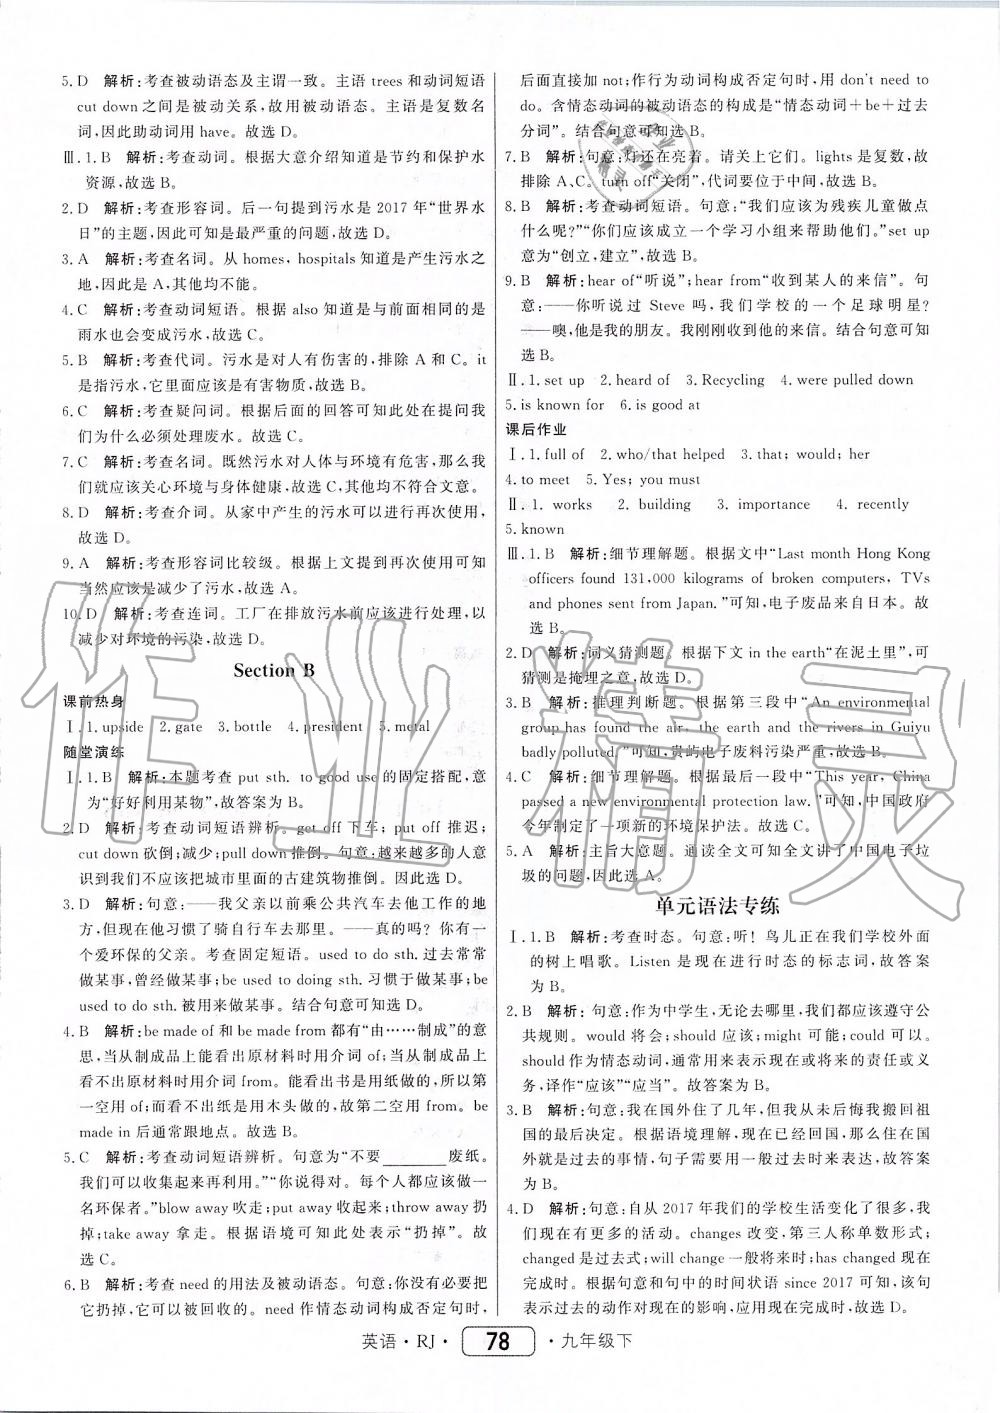 5. D　解析:考查被动语态及主谓一致。主语 trees 和动词短语
cut down 之间是被动关系,故用被动语态。主语是复数名
词,因此助动词用 have。故选 D。
Ⅲ. 1. B　解析:考查动词。根据大意介绍知道是节约和保护水
资源,故选 B。
2. D　解析:考查形容词。后一句提到污水是 2017 年“世界水
日”的主题,因此可知是最严重的问题,故选 D。
3. A　解析:考查名词。从 homes, hospitals 知道是产生污水之
地,因此是 A,其他均不能。
4. C　解析:考查动词短语。根据 also 知道是与前面相同的是
雨水也会变成污水,故选 C。
5. B　解析:考查代词。污水是对人有伤害的,排除 A 和 C。it
是指污水,它里面应该是有害物质,故选 B。
6. C　解析:考查疑问词。根据后面的回答可知此处在提问我
们为什么必须处理废水。故选 C。
7. C　解析:考查名词。既然污水对人体与环境有危害,那么我
们就应该关心环境与身体健康,故选 C,其他均不符合文意。
8. D　解析:考查介词。从家中产生的污水可以进行再次使用,
故选 D。
9. A　解析:考查形容词比较级。根据上文提到进行再次使用
当然应该是减少了污水,故选 A。
10. D　解析:考查连词。工厂在排放污水前应该进行处理,以
减少对环境的污染,故选 D。
Section B
课前热身
Ⅰ. 1. upside　2. gate　3. bottle　4. president　5. metal
随堂演练
Ⅰ. 1. B　解析:本题考查 put sth. to good use 的固定搭配,意
为“好好利用某物”,故答案为 B。
2. D　解析:考查动词短语辨析。get off 下车; put off 推迟;
cut down 砍倒;减少;pull down 推倒。句意:越来越多的人意
识到我们不应该把城市里面的古建筑物推倒。因此选 D。
3. D　解析:句意:——我父亲以前乘公共汽车去他工作的地
方,但现在他习惯了骑自行车去那里。——真的吗? 你有一
个爱环保的父亲。考查固定短语。used to do sth. 过去常常
做某事,曾经做某事;be used to doing sth. 习惯于做某事;be
used to do sth. 被用来做某事。结合句意可知选 D。
4. B　解析:be made of 和 be made from 都有“由……制成”的意
思,当从制成品上能看出原材料时用介词 of;从制成品上
看不出原材料时用介词 from。能看出书是用纸做的,所以第
一空用 of;而看不出纸是用木头做的,故第二空用 from。be
made in 后通常跟地点。故选 B。
5. C　解析:考查动词短语辨析。句意为“不要________废纸。
我们可以收集起来再利用。”“你说得对。每个人都应该做一
名环保者。”blow away 吹走;put away 收起来;throw away 扔
掉;take away 拿走。根据语境可知此处表示“扔掉”。故
选 C。
6. B　解析:考查 need 的用法及被动语态。句意:你没有必要把
它扔掉,它可以被回收的。need 作情态动词构成否定句时,
后面直接加 not;作行为动词构成否定句时,用 don't need to
do。含情态动词的被动语态的构成是“情态动词+be+过去
分词”。结合句意可知选 B。
7. B　解析:句意:灯还在亮着。请关上它们。lights 是复数,故
排除 A、C。turn off“关闭”,代词要位于中间,故选 B。
8. B　解析:考查动词短语。句意:“我们应该为残疾儿童做点
什么呢?”“你们应该成立一个学习小组来帮助他们。”set up
意为“创立,建立”,故选 B。
9. B　解析:hear of“听说”;hear from“收到某人的来信”。句
意:——你听说过 Steve 吗,我们学校的一个足球明星?
——噢,他是我的朋友。我刚刚收到他的来信。结合句意可知
选 B。
Ⅱ. 1. set up　2. heard of　3. Recycling　4. were pulled down
5. is known for　6. is good at
课后作业
Ⅰ. 1. full of　2. who/that helped　3. that; would; her
4. to meet　5. Yes; you must
Ⅱ. 1. works　2. building　3. importance　4. recently
5. known
Ⅲ. 1. B　解析:细节理解题。根据文中“Last month Hong Kong
officers found 131,000 kilograms of broken computers, TVs
and phones sent from Japan.”可知,电子废品来自日本。故
选 B。
2. D　解析:词义猜测题。根据下文 in the earth“在泥土里”,可
猜测是掩埋之意,故选 D。
3. B　解析:推理判断题。根据第三段中“An environmental
group has found the air, the earth and the rivers in Guiyu
badly polluted.”可知,贵屿电子废料污染严重,故选 B。
4. C　解析:细节理解题。根据最后一段中“This year, China
passed a new environmental protection law.”可知,中国政府
今年制定了一项新的环境保护法。故选 C。
5. A　解析:主旨大意题。通读全文可知全文讲了中国电子垃
圾的问题。因此选 A。
单元语法专练
Ⅰ. 1. B　解析:考查时态。句意:听! 鸟儿正在我们学校外面
的树上唱歌。Listen 是现在进行时态的标志词,故答案
为 B。
2. B　解析:句意:作为中学生,无论去哪里,我们都应该遵守公
共规则。would 将会;should 应该;might 可能;could 可以。
should 作为情态动词,通常用来表示现在或将来的责任或义
务,译作“应该”“应当”。故答案为 B。
3. B　解析:句意:我在国外住了几年,但我从未后悔我搬回祖
国的最后决定。根据语境理解,现在已经回国,那么住在国
外就是过去的事情,句子需要用一般过去时来表达,故答案
为 B。
4. D　解析:句意:自从 2017 年我们的学校生活变化了很多,我
们现在有更多的活动。changes 改变,第三人称单数形式;
changed 是过去式;will change 一般将来时;has changed 现在
完成时。根据句意和句中的时间状语 since 2017 可知,该句
表示过去的动作对现在的影响,应用现在完成时,故选 D。
英语·RJ· 78 ·九年级下
作业精灵